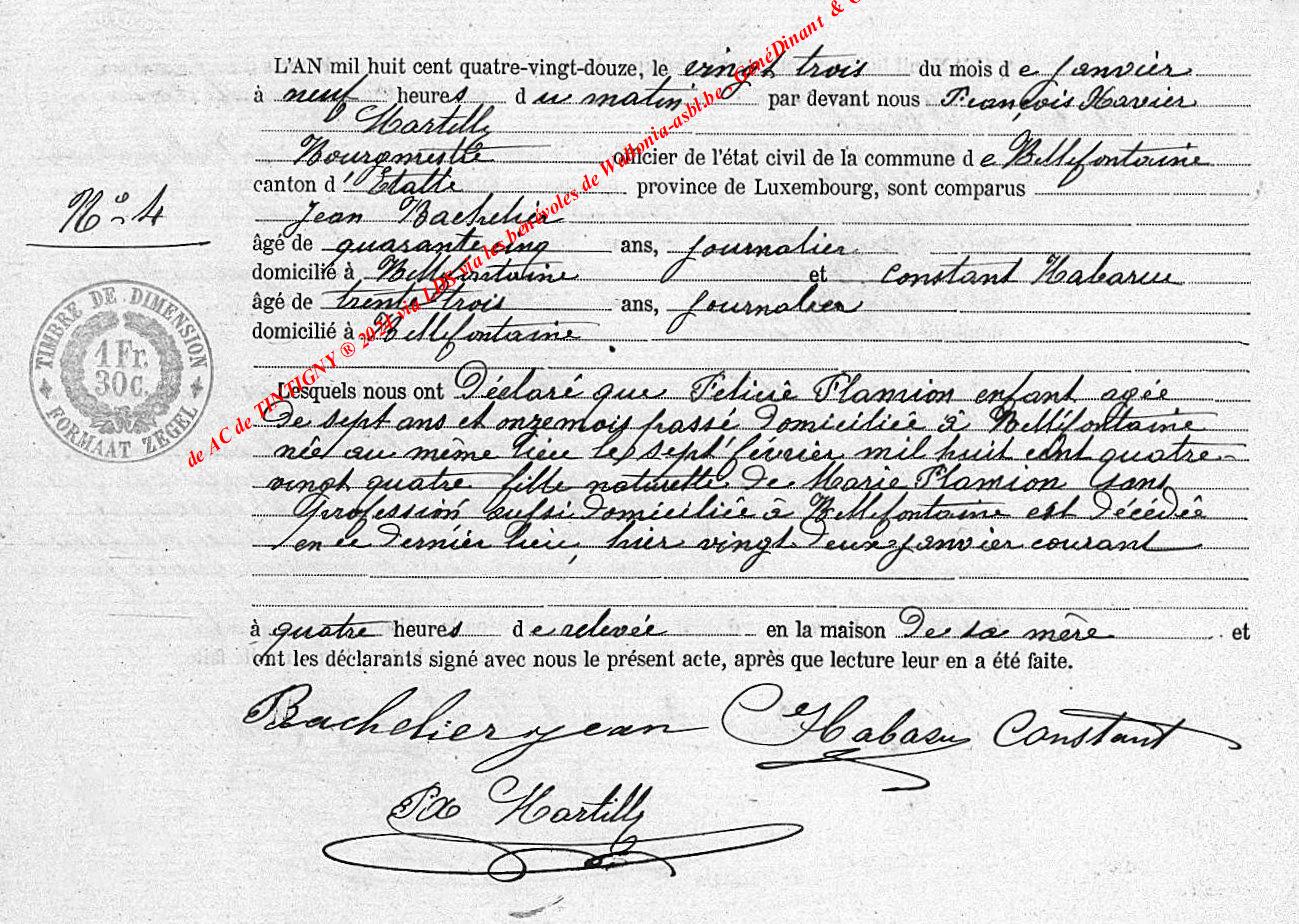 L'AN mil huit cent quatre-vingt-douze, le vingt trois du mois de janvier
à neuf heures du matin par devant nous François Xavier
Hartilly
Bourgmestre officier de l'état civil de la commune de Bellefontaine
canton d'Etalle province de Luxembourg, sont comparus
N° 4
Jean Bachelier
âgé de quarante cinq ans, journalier
domicilié à Bellefontaine et Constant Habaru
âgé de trente trois ans, journalier
domicilié à Bellefontaine
TIMBRE DE DIMENSION
1 Fr.
30 c.
FORMAAT ZEGEL
Lesquels nous ont Déclaré que Felicie Flamion enfant agée
de sept ans et onze mois passé domiciliée à Bellefontaine
née au même lieu le sept février mil huit cent quatre-
vingt quatre fille naturelle de Marie Flamion sans
profession aussi domiciliée à Bellefontaine est décédée
en ce dernier lieu, hier vingt deux janvier courant
à quatre heures de relevée en la maison de sa mère et
ont les déclarants signé avec nous le présent acte, après que lecture leur en a été faite.
Bachelier jean Habaru Constant
Fx Hartilly
de AC de TINTIGNY ® 2021 via LDS via les bénévoles de Wallonia-asbl.be - GénéDinant &